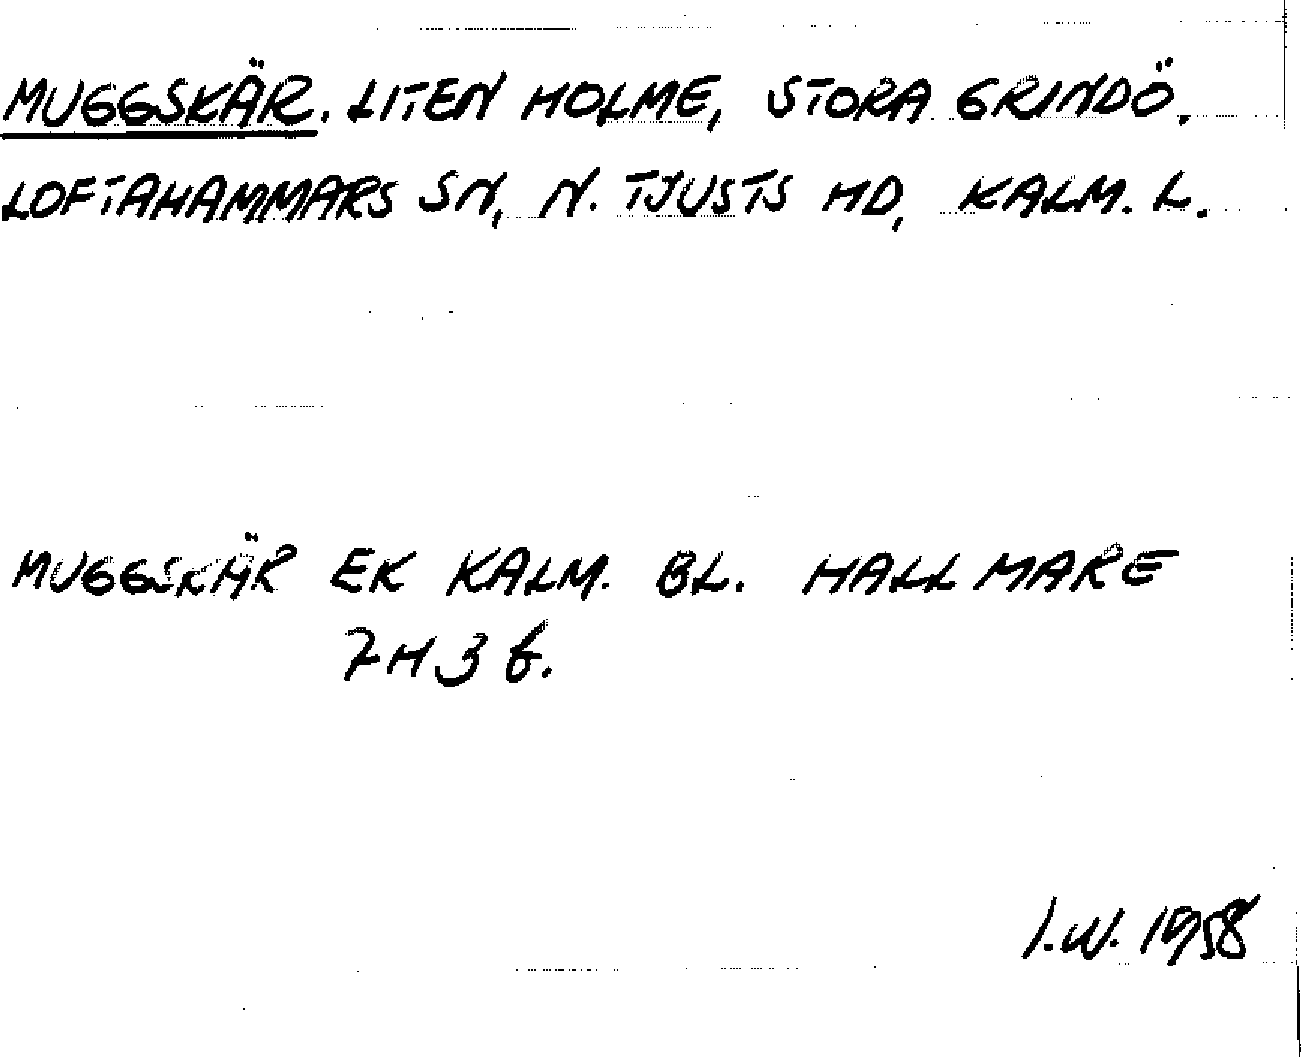 MUGGSKÄR. LITEN HOLME, STORA GRINDÖ.
LOFTAHAMMARS SN, N. TJUSTS HD, KALM. L.
MUGGSKÄR EK KALM. BL. HALLMARE
7H3b.
I.W. 1958